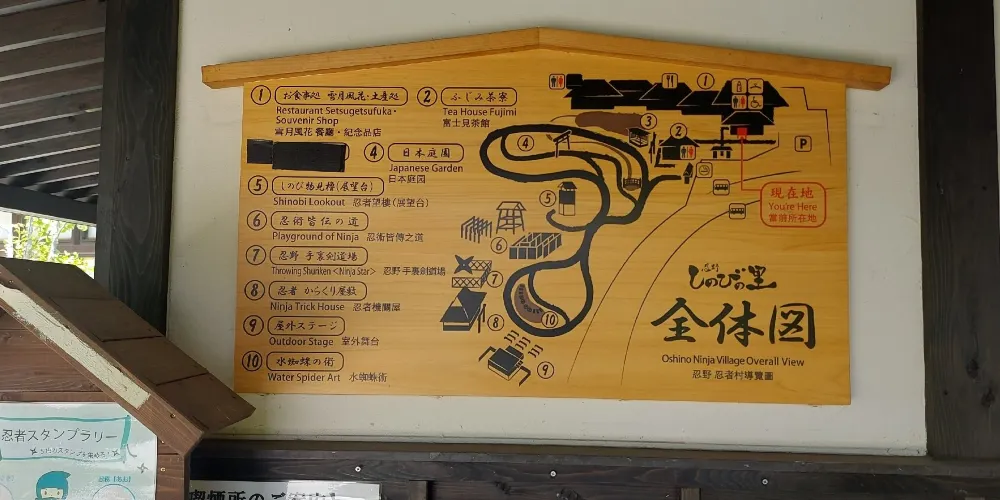 1 お食事処 雪月風花・土産処
Restaurant Setsugetsufuka・
Souvenir Shop
雪月風花 餐廳・紀念品店
2 ふじみ茶寮
Tea House Fujimi
富士見茶館
4 日本庭園
Japanese Garden
日本庭园
5 しのび物見櫓(展望台)
Shinobi Lookout 忍者望樓(展望台)
6 忍術皆伝の道
Playground of Ninja 忍術皆傳之道
7 忍野 手裏剣道場
Throwing Shuriken <Ninja Star> 忍野 手裏劍道場
8 忍者 からくり屋敷
Ninja Trick House 忍者機關屋
9 屋外ステージ
Outdoor Stage 室外舞台
10 水蜘蛛の術
Water Spider Art 水蜘蛛術
1
2
3
4
5
6
7
8
9
10
P
現在地
You're Here
當前所在地
忍野
しのびの里
全体図
Oshino Ninja Village Overall View
忍野 忍者村導覽圖
忍者スタンプラリー
喫煙所のご案内